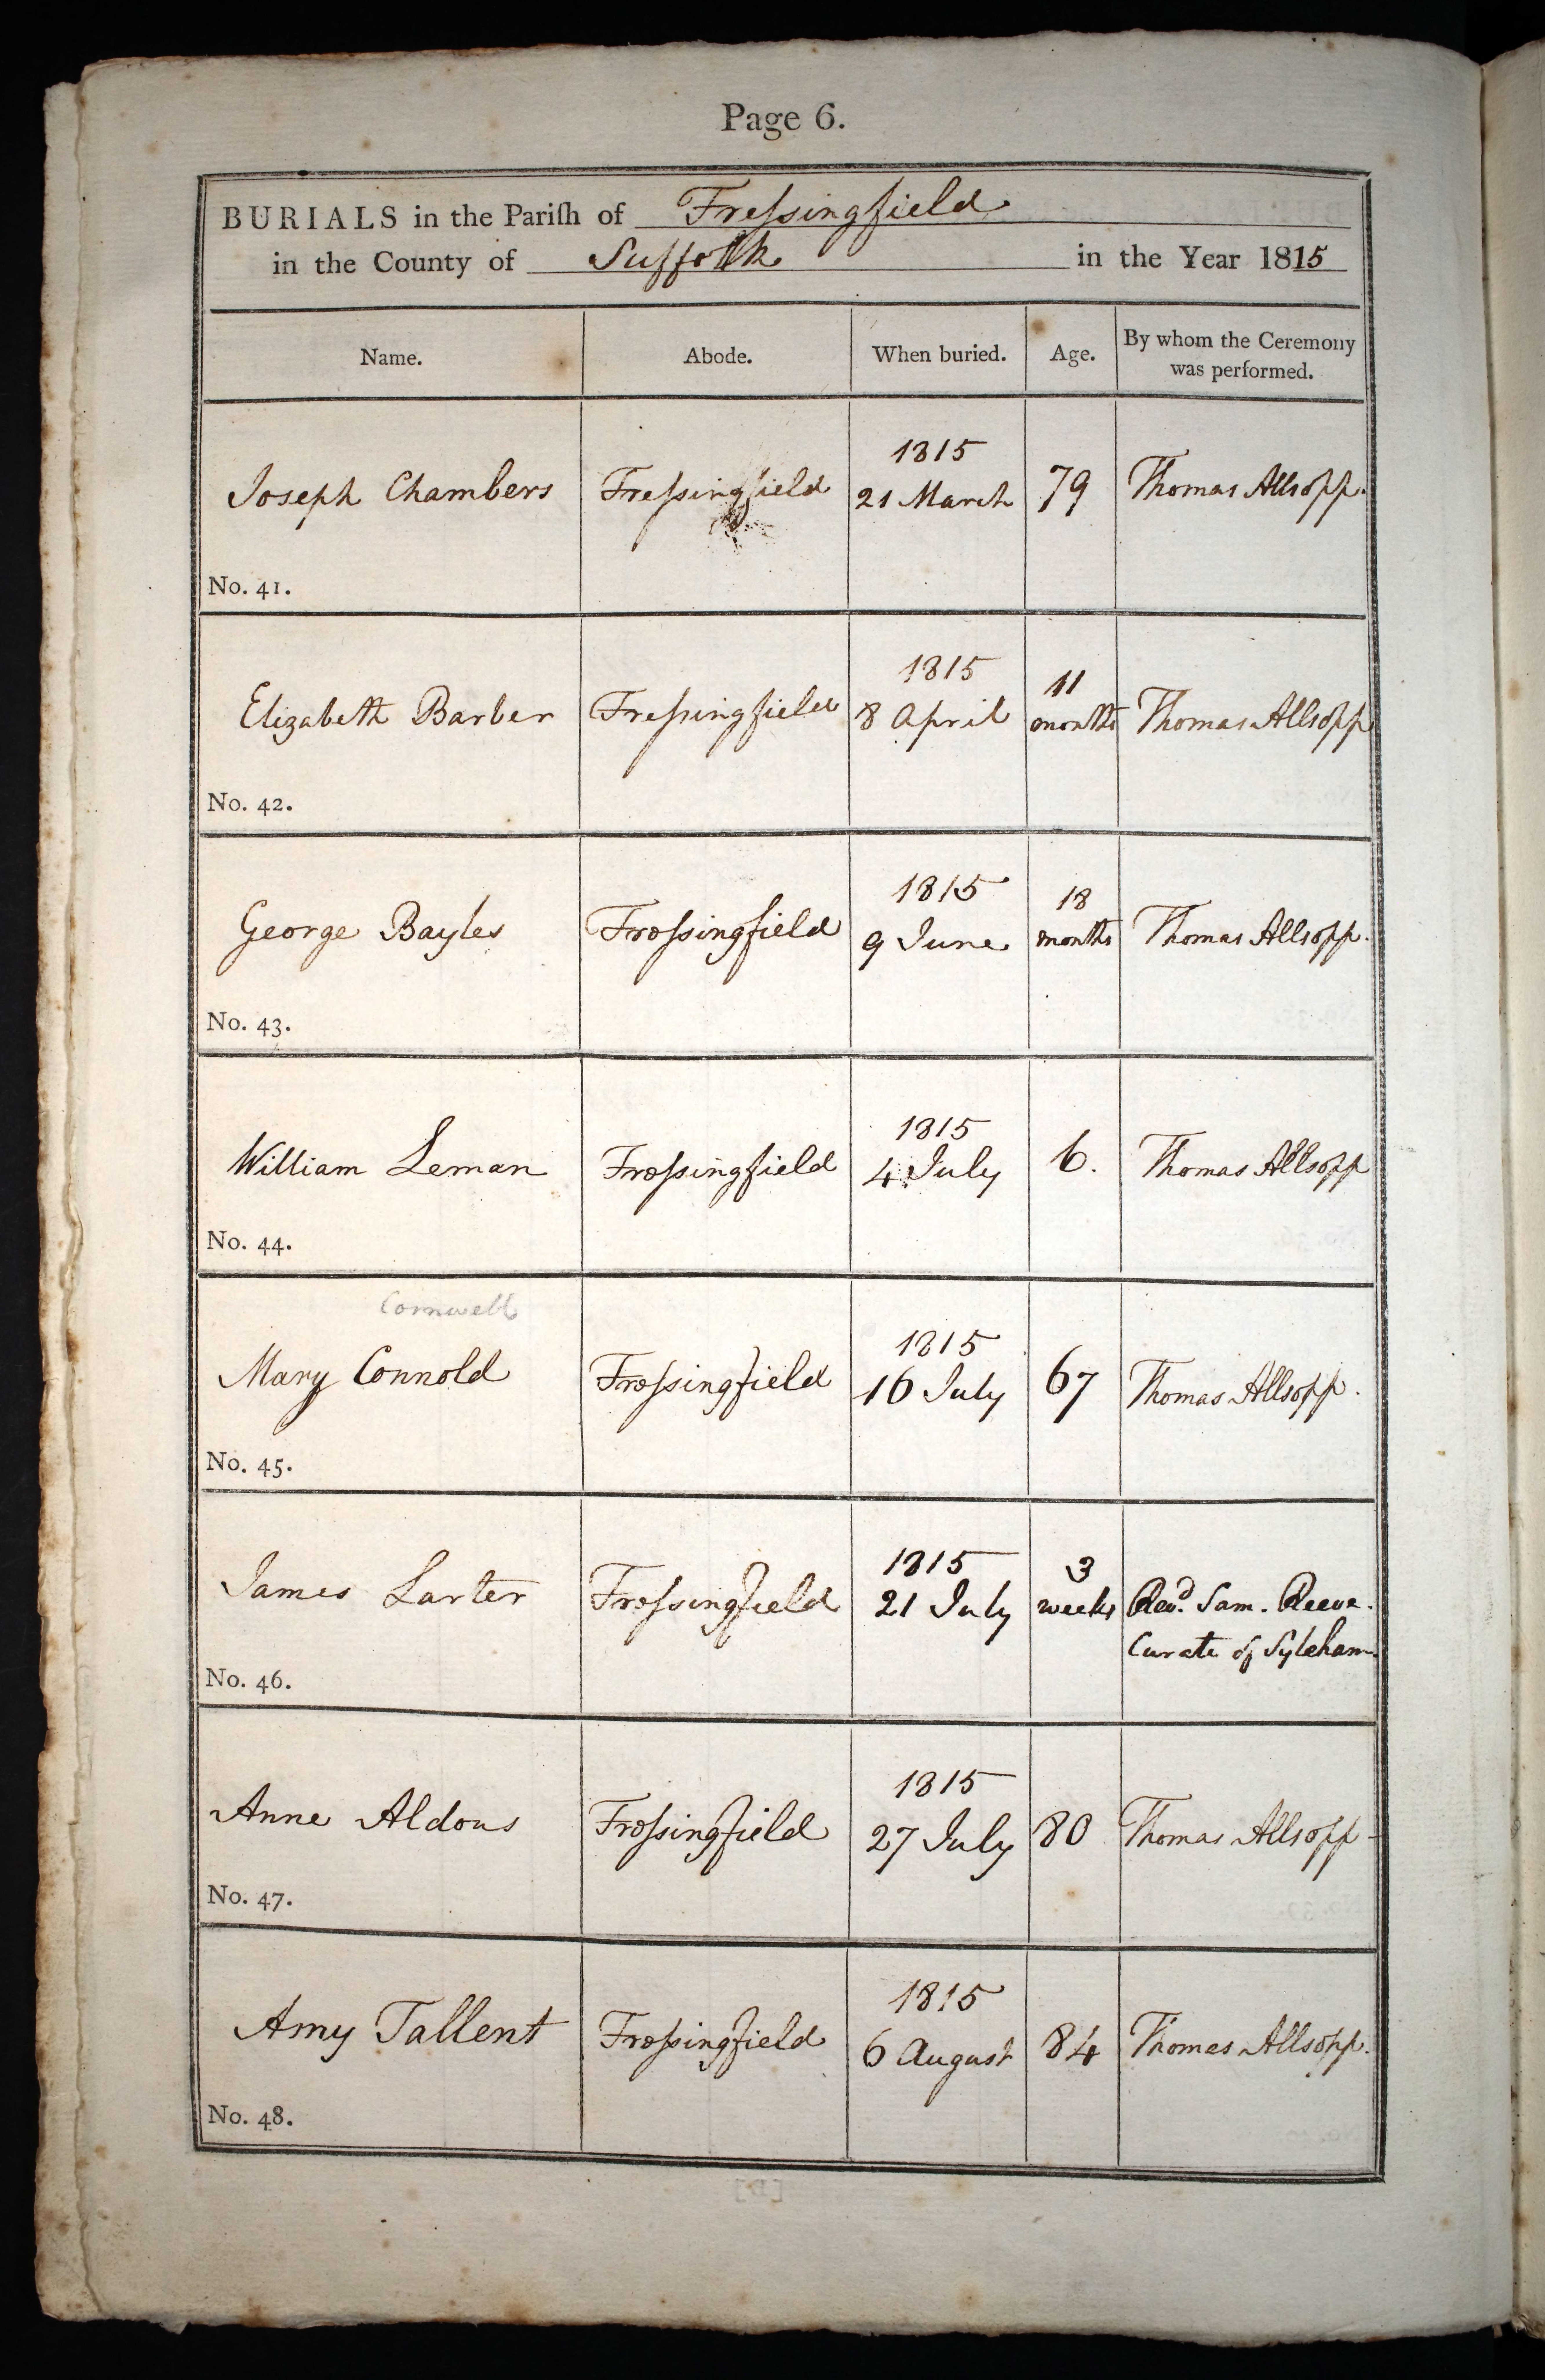 Page 6.
BURIALS in the Pariſh of Freſsingfield
in the County of Suffolk in the Year 1815
Name. Abode. When buried. Age. By whom the Ceremony was performed.
1815
Joseph Chambers Freſsingfield 21 March 79 Thomas Allsopp.
No. 41.
1815 11
Elizabeth Barber Freſsingfield 8 April months Thomas Allsopp
No. 42.
1815 18
George Bayles Freſsingfield 9 June months Thomas Allsopp.
No. 43.
1815
William Leman Freſsingfield 4 July 6. Thomas Allsopp
No. 44.
Cornwell
1815
Mary Connold Freſsingfield 16 July 67 Thomas Allsopp.
No. 45.
1815 3
James Larter Freſsingfield 21 July weeks Revd. Sam. Reeve.
Curate of Syleham.
No. 46.
1815
Anne Aldous Freſsingfield 27 July 80 Thomas Allsopp
No. 47.
1815
Amy Tallent Freſsingfield 6 August 84 Thomas Allsopp.
No. 48.